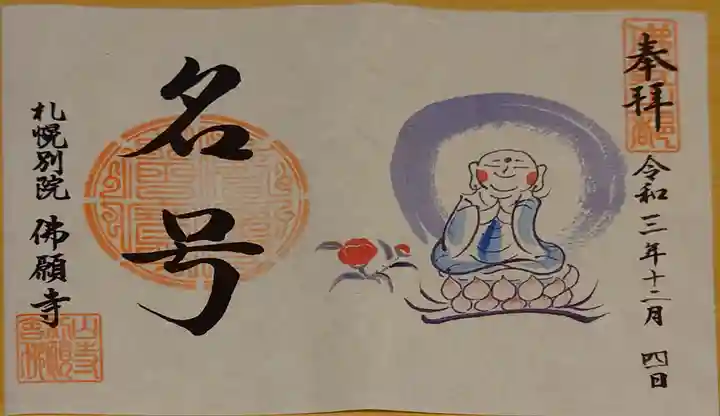 奉拝
令和三年十二月 四日
名号
札幌別院 佛願寺